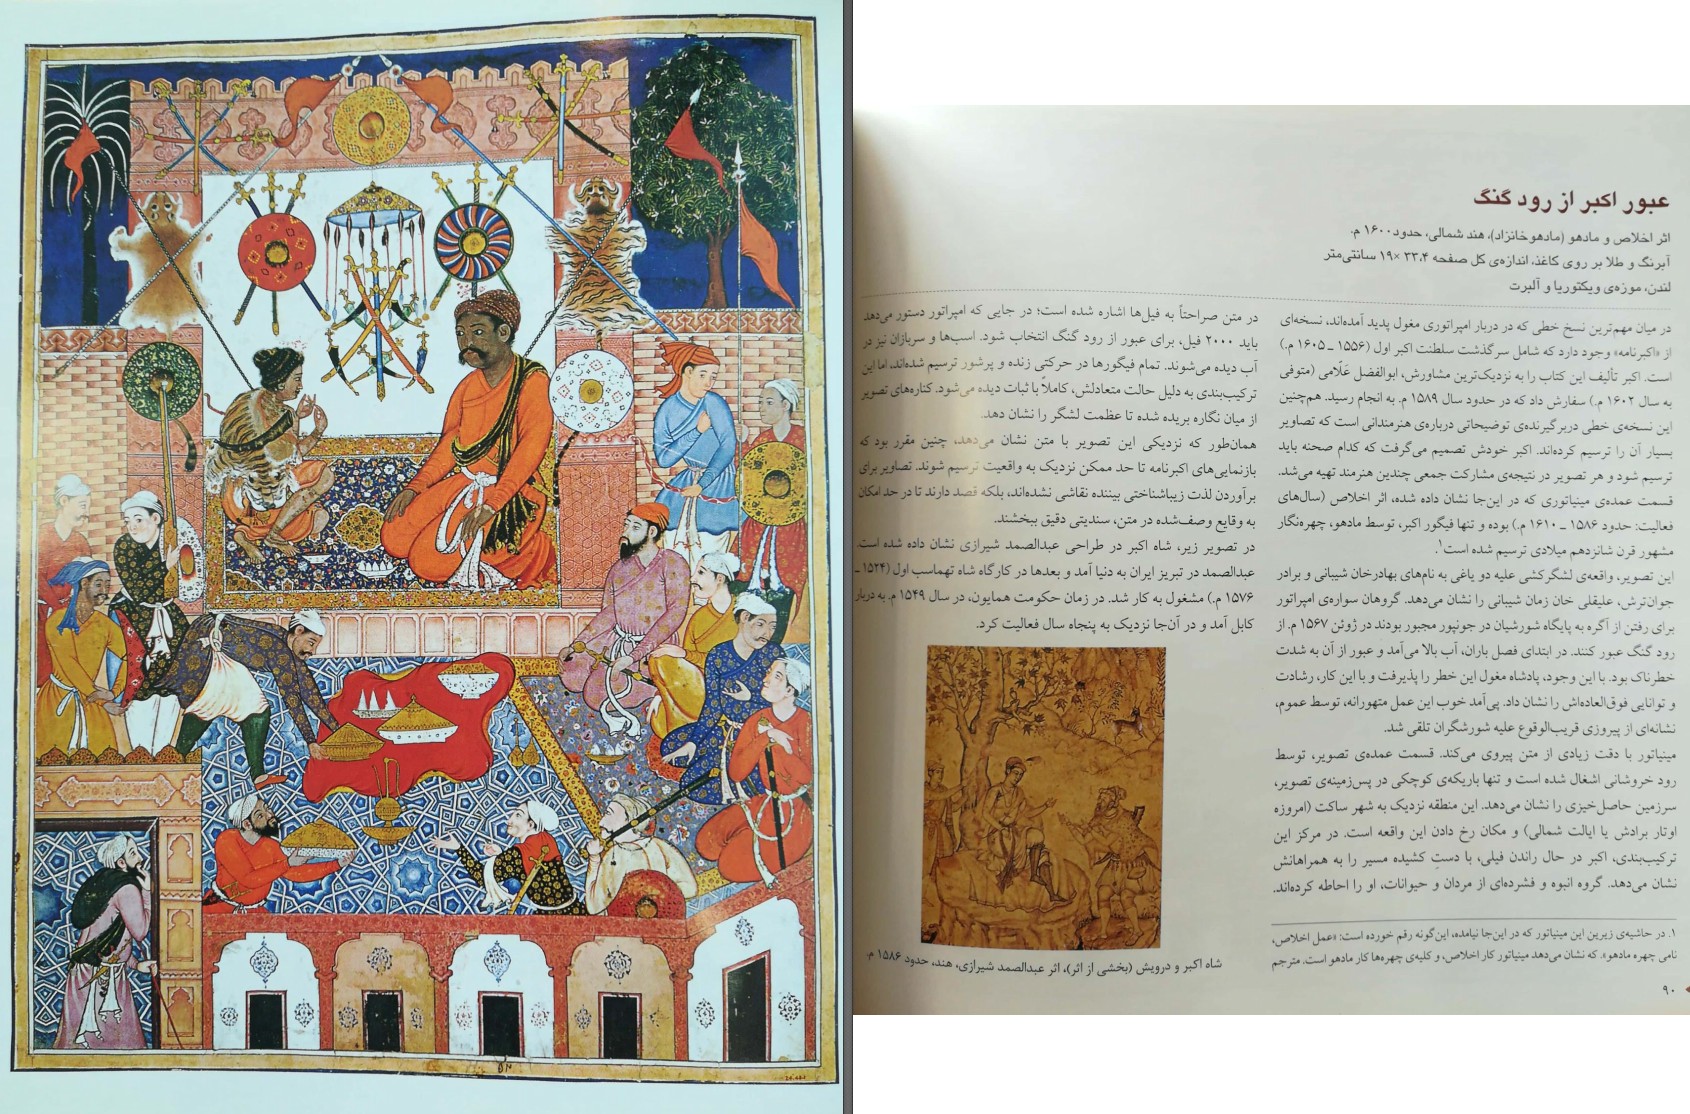 عبور اکبر از رود گنگ
اثر اخلاص و مادهو (مادهو خانزاد)، هند شمالی، حدود ۱۶۰۰ م.
آبرنگ و طلا بر روی کاغذ، اندازه‌ی کل صفحه ۳۳،۴ × ۱۹ سانتی‌متر
لندن، موزه‌ی ویکتوریا و آلبرت
در میان مهم‌ترین نسخ خطی که در دربار امپراتوری مغول پدید آمده‌اند، نسخه‌ای
از «اکبرنامه» وجود دارد که شامل سرگذشت سلطنت اکبر اول (۱۵۵۶ ـ ۱۶۰۵ م.)
است. اکبر تألیف این کتاب را به نزدیک‌ترین مشاورش، ابوالفضل عَلّامی (متوفی
به سال ۱۶۰۲ م.) سفارش داد که در حدود سال ۱۵۸۹ م. به انجام رسید. هم‌چنین
این نسخه‌ی خطی دربرگیرنده‌ی توضیحاتی درباره‌ی هنرمندانی است که تصاویر
بسیار آن را ترسیم کرده‌اند. اکبر خودش تصمیم می‌گرفت که کدام صحنه باید
ترسیم شود و هر تصویر در نتیجه‌ی مشارکت جمعی چندین هنرمند تهیه می‌شد.
قسمت عمده‌ی مینیاتوری که در این‌جا نشان داده شده، اثر اخلاص (سال‌های
فعالیت: حدود ۱۵۸۶ ـ ۱۶۱۰ م.) بوده و تنها فیگور اکبر، توسط مادهو، چهره‌نگار
مشهور قرن شانزدهم میلادی ترسیم شده است۱.
این تصویر، واقعه‌ی لشگرکشی علیه دو یاغی به نام‌های بهادرخان شیبانی و برادر
جوان‌ترش، علیقلی خان زمان شیبانی را نشان می‌دهد. گروهان سواره‌ی امپراتور
برای رفتن از آگره به پایگاه شورشیان در جونپور مجبور بودند در ژوئن ۱۵۶۷ م. از
رود گنگ عبور کنند. در ابتدای فصل باران، آب بالا می‌آمد و عبور از آن به شدت
خطرناک بود. با این وجود، پادشاه مغول این خطر را پذیرفت و با این کار، رشادت
و توانایی فوق‌العاده‌اش را نشان داد. پی‌آمد خوب این عمل متهورانه، توسط عموم،
نشانه‌ای از پیروزی قریب‌الوقوع علیه شورشگران تلقی شد.
مینیاتور با دقت زیادی از متن پیروی می‌کند. قسمت عمده‌ی تصویر، توسط
رود خروشانی اشغال شده است و تنها باریکه‌ی کوچکی در پس‌زمینه‌ی تصویر،
سرزمین حاصل‌خیزی را نشان می‌دهد. این منطقه نزدیک به شهر ساکت (امروزه
اوتار برادش یا ایالت شمالی) و مکان رخ دادن این واقعه است. در مرکز این
ترکیب‌بندی، اکبر در حال راندن فیلی، با دستِ کشیده مسیر را به همراهانش
نشان می‌دهد. گروه انبوه و فشرده‌ای از مردان و حیوانات، او را احاطه کرده‌اند.
در متن صراحتاً به فیل‌ها اشاره شده است؛ در جایی که امپراتور دستور می‌دهد
باید ۲۰۰۰ فیل، برای عبور از رود گنگ انتخاب شود. اسب‌ها و سربازان نیز در
آب دیده می‌شوند. تمام فیگورها در حرکتی زنده و پرشور ترسیم شده‌اند، اما این
ترکیب‌بندی به دلیل حالت متعادلش، کاملاً با ثبات دیده می‌شود. کناره‌های تصویر
از میان نگاره بریده شده تا عظمت لشگر را نشان دهد.
همان‌طور که نزدیکی این تصویر با متن نشان می‌دهد، چنین مقرر بود که
بازنمایی‌های اکبرنامه تا حد ممکن نزدیک به واقعیت ترسیم شوند. تصاویر برای
برآوردن لذت زیباشناختی بیننده نقاشی نشده‌اند، بلکه قصد دارند تا در حد امکان
به وقایع وصف‌شده در متن، سندیتی دقیق ببخشند.
در تصویر زیر، شاه اکبر در طراحی عبدالصمد شیرازی نشان داده شده است.
عبدالصمد در تبریز ایران به دنیا آمد و بعدها در کارگاه شاه تهماسب اول (۱۵۲۴ ـ
۱۵۷۶ م.) مشغول به کار شد. در زمان حکومت همایون، در سال ۱۵۴۹ م. به دربار
کابل آمد و در آن‌جا نزدیک به پنجاه سال فعالیت کرد.
شاه اکبر و درویش (بخشی از اثر)، اثر عبدالصمد شیرازی، هند، حدود ۱۵۸۶ م.
۱. در حاشیه‌ی زیرین این مینیاتور که در این‌جا نیامده، این‌گونه رقم خورده است: «عمل اخلاص،
نامی چهره مادهو». که نشان می‌دهد مینیاتور کار اخلاص، و کلیه‌ی چهره‌ها کار مادهو است. مترجم
۹۰